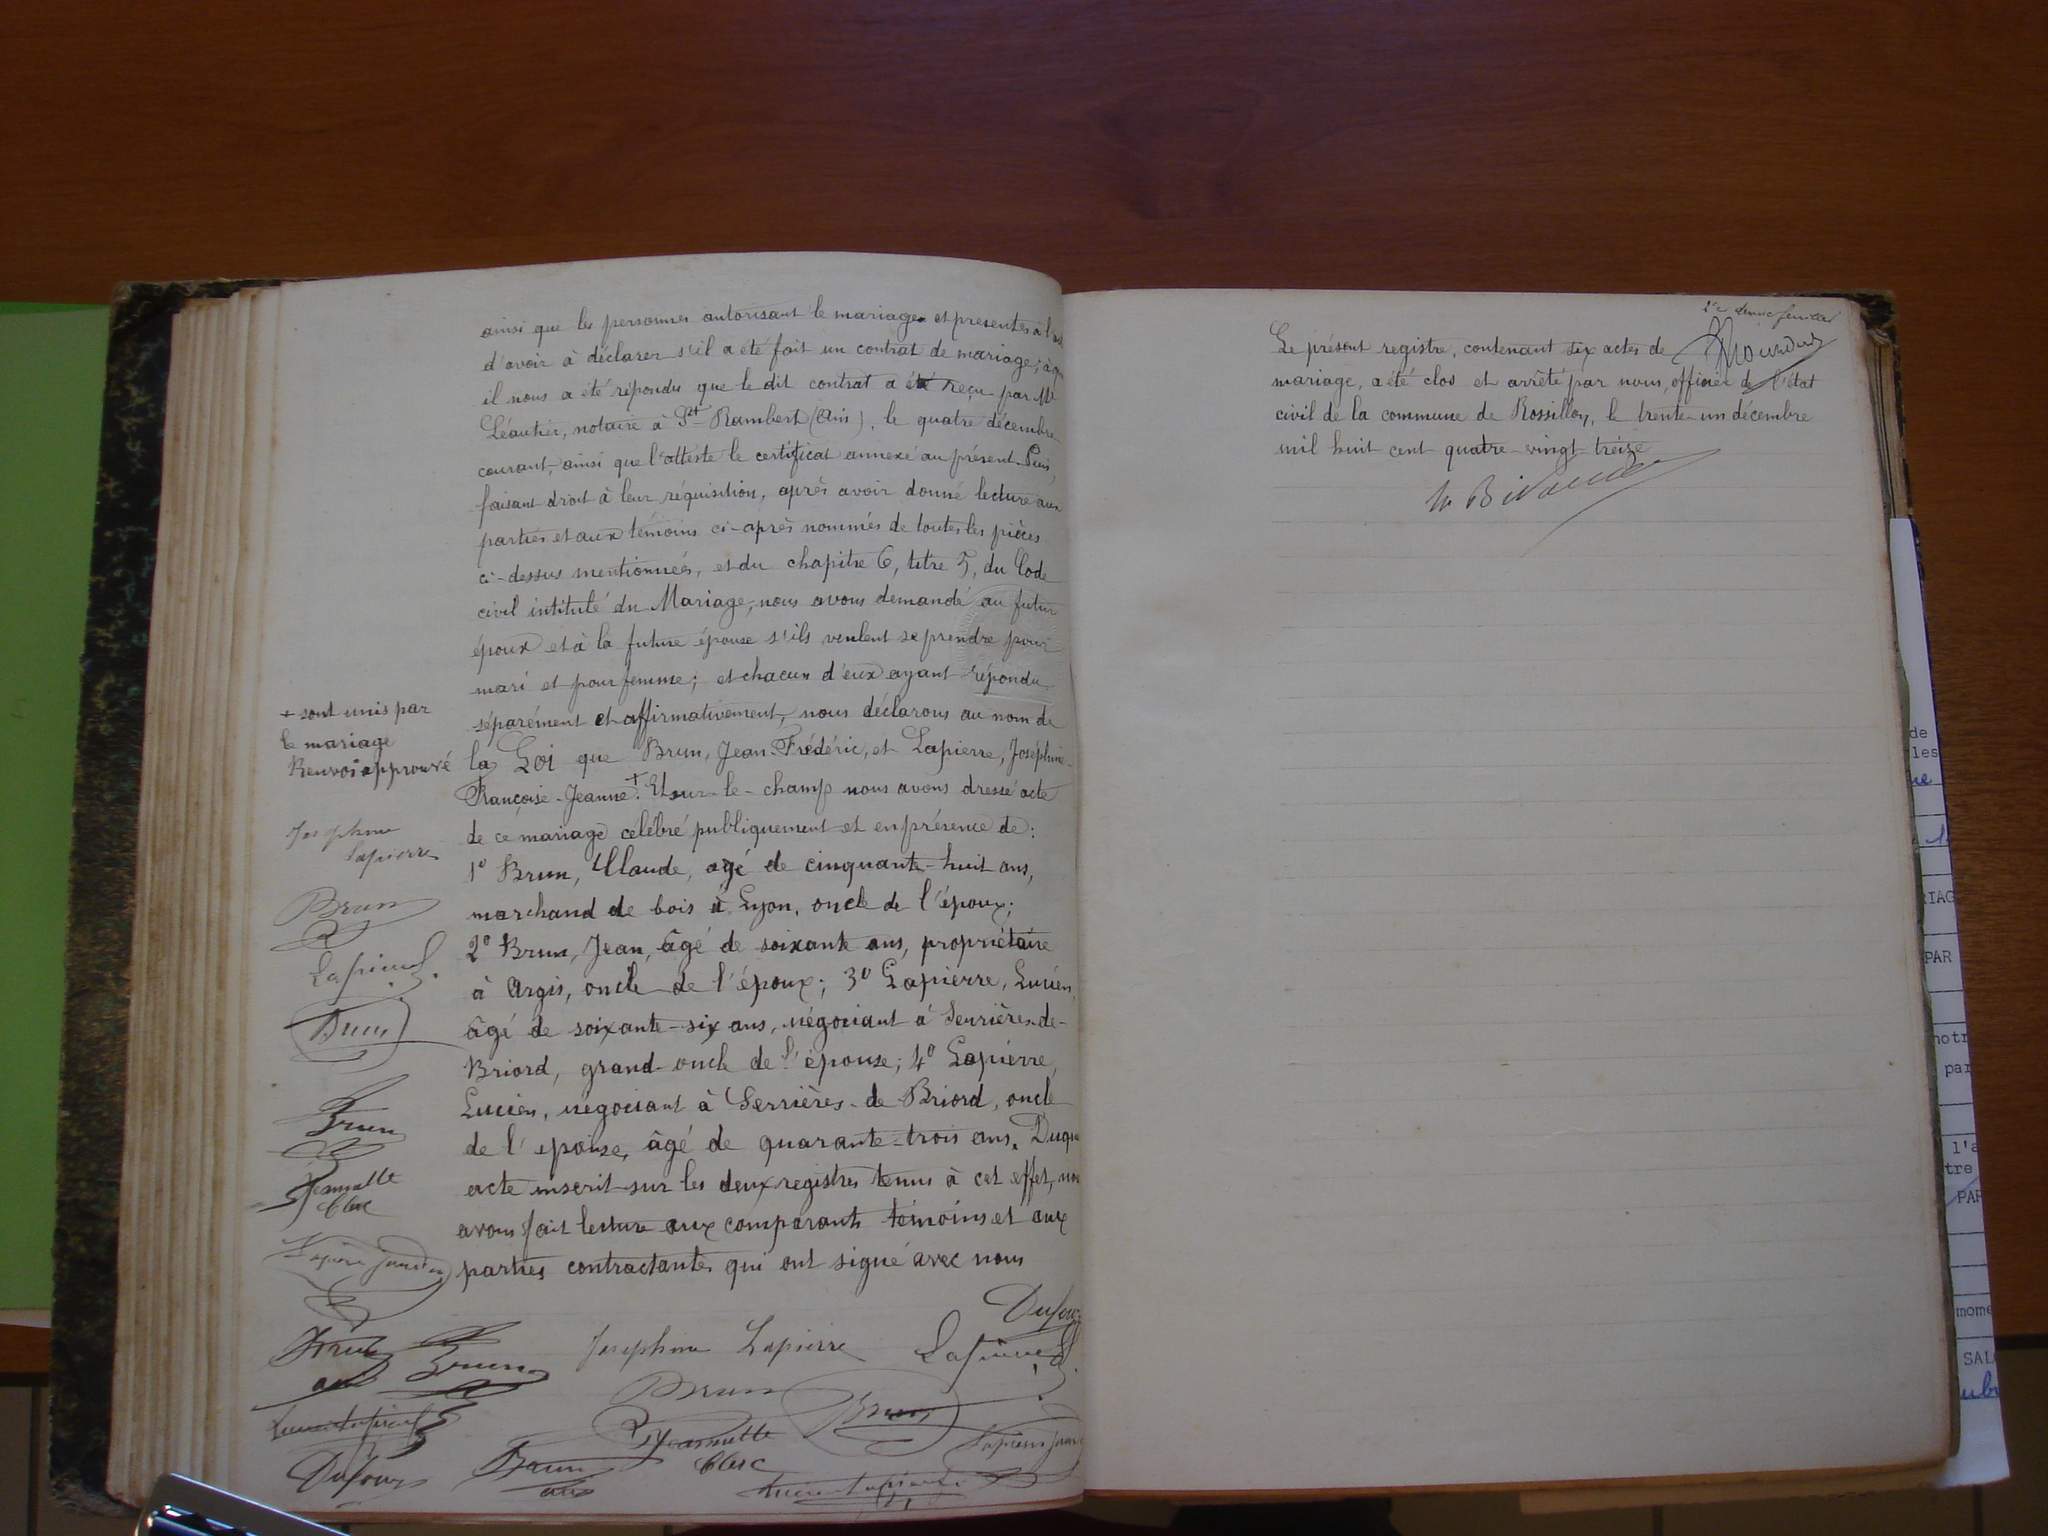 ainsi que les personnes autorisant le mariage et présentes à l'
d'avoir à déclarer s'il a été fait un contrat de mariage; à
il nous a été répondu que le dit contrat a été reçu par Me
Léautier, notaire à St Rambert (Ain), le quatre décembre
courant, ainsi que l'atteste le certificat annexé au présent. Puis,
faisant droit à leur réquisition, après avoir donné lecture aux
parties et aux témoins ci-après nommés de toutes les pièces
ci-dessus mentionnées, et du chapitre 6, titre 5, du Code
civil intitulé du Mariage, nous avons demandé au futur
époux et à la future épouse s'ils veulent se prendre pour
mari et pour femme; et chacun d'eux ayant répondu
séparément et affirmativement, nous déclarons au nom de
la Loi que Brun, Jean-Frédéric, et Lapierre, Joséphine-
Françoise-Jeanne +. Et sur-le-champ nous avons dressé acte
de ce mariage célébré publiquement et en présence de:
1º Brun, Claude, agé de cinquante-huit ans,
marchand de bois à Lyon, oncle de l'époux;
2º Brun, Jean, âgé de soixante ans, propriétaire
à Argis, oncle de l'époux; 3º Lapierre, Lucien,
âgé de soixante-six ans, négociant à Serrières-de-
Briord, grand-oncle de l'épouse; 4º Lapierre,
Lucien, négociant à Serrières-de Briord, oncle
de l'épouse, âgé de quarante-trois ans. Duquel
acte inscrit sur les deux registres tenus à cet effet, nous
avons fait lecture aux comparants témoins et aux
parties contractantes qui ont signé avec nous
+ sont unis par
le mariage
Renvoi approuvé
Josephine
Lapierre
Brun
Lapierre
Brun
Brun
Jeannette
Clerc
Lapierre
Brun
Brun
Dufour
Dufour
Josephine Lapierre
Lapierre
Brun
Brun
Jeannette
Clerc
Lapierre
Brun
Lucien Lapierre
Le présent registre, contenant six actes de
mariage, a été clos et arrêté par nous, officier de l'état
civil de la commune de Rossillon, le trente-un décembre
mil huit cent quatre-vingt treize
de
les
RIAG
PAR
notr
par
l'a
tre
PAR
mome
SAL